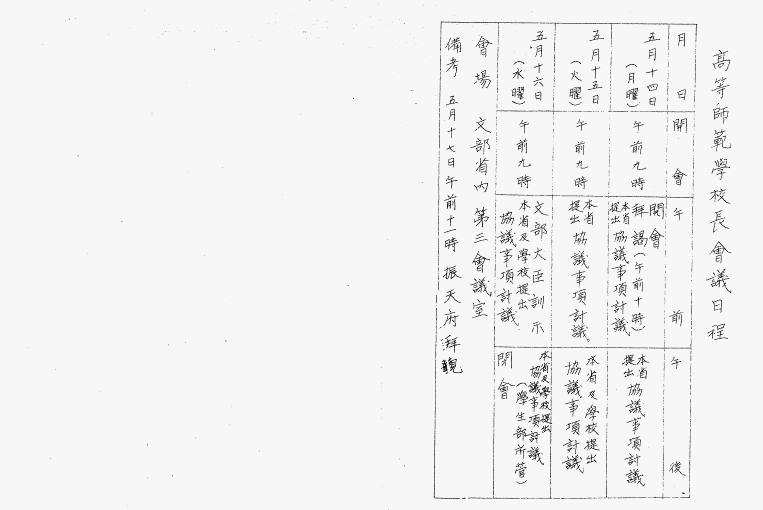 高等師範學校長會議日程
月日
開會
午前
午後
五月十四日
(月曜)
午前九時
開會
拜謁(午前十時)
本省提出協議事項討議
本省提出協議事項討議
五月十五日
(火曜)
午前九時
本省提出協議事項討議。
本省及學校提出
協議事項討議
五月十六日
(水曜)
午前九時
文部大臣訓示
本省及學校提出
協議事項討議
本省及學校提出
協議事項討議
(學生部所管)
閉會
會場 文部省内 第三會議室
備考 五月十七日午前十一時 振天府拜觀